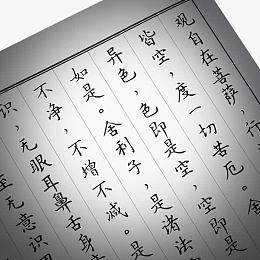 观自在菩萨,行
皆空,度一切苦厄。舍
异色,色即是空,空即是
如是。舍利子,是诸法
不争,不增不减。是
识,无眼耳鼻舌身
至无意识